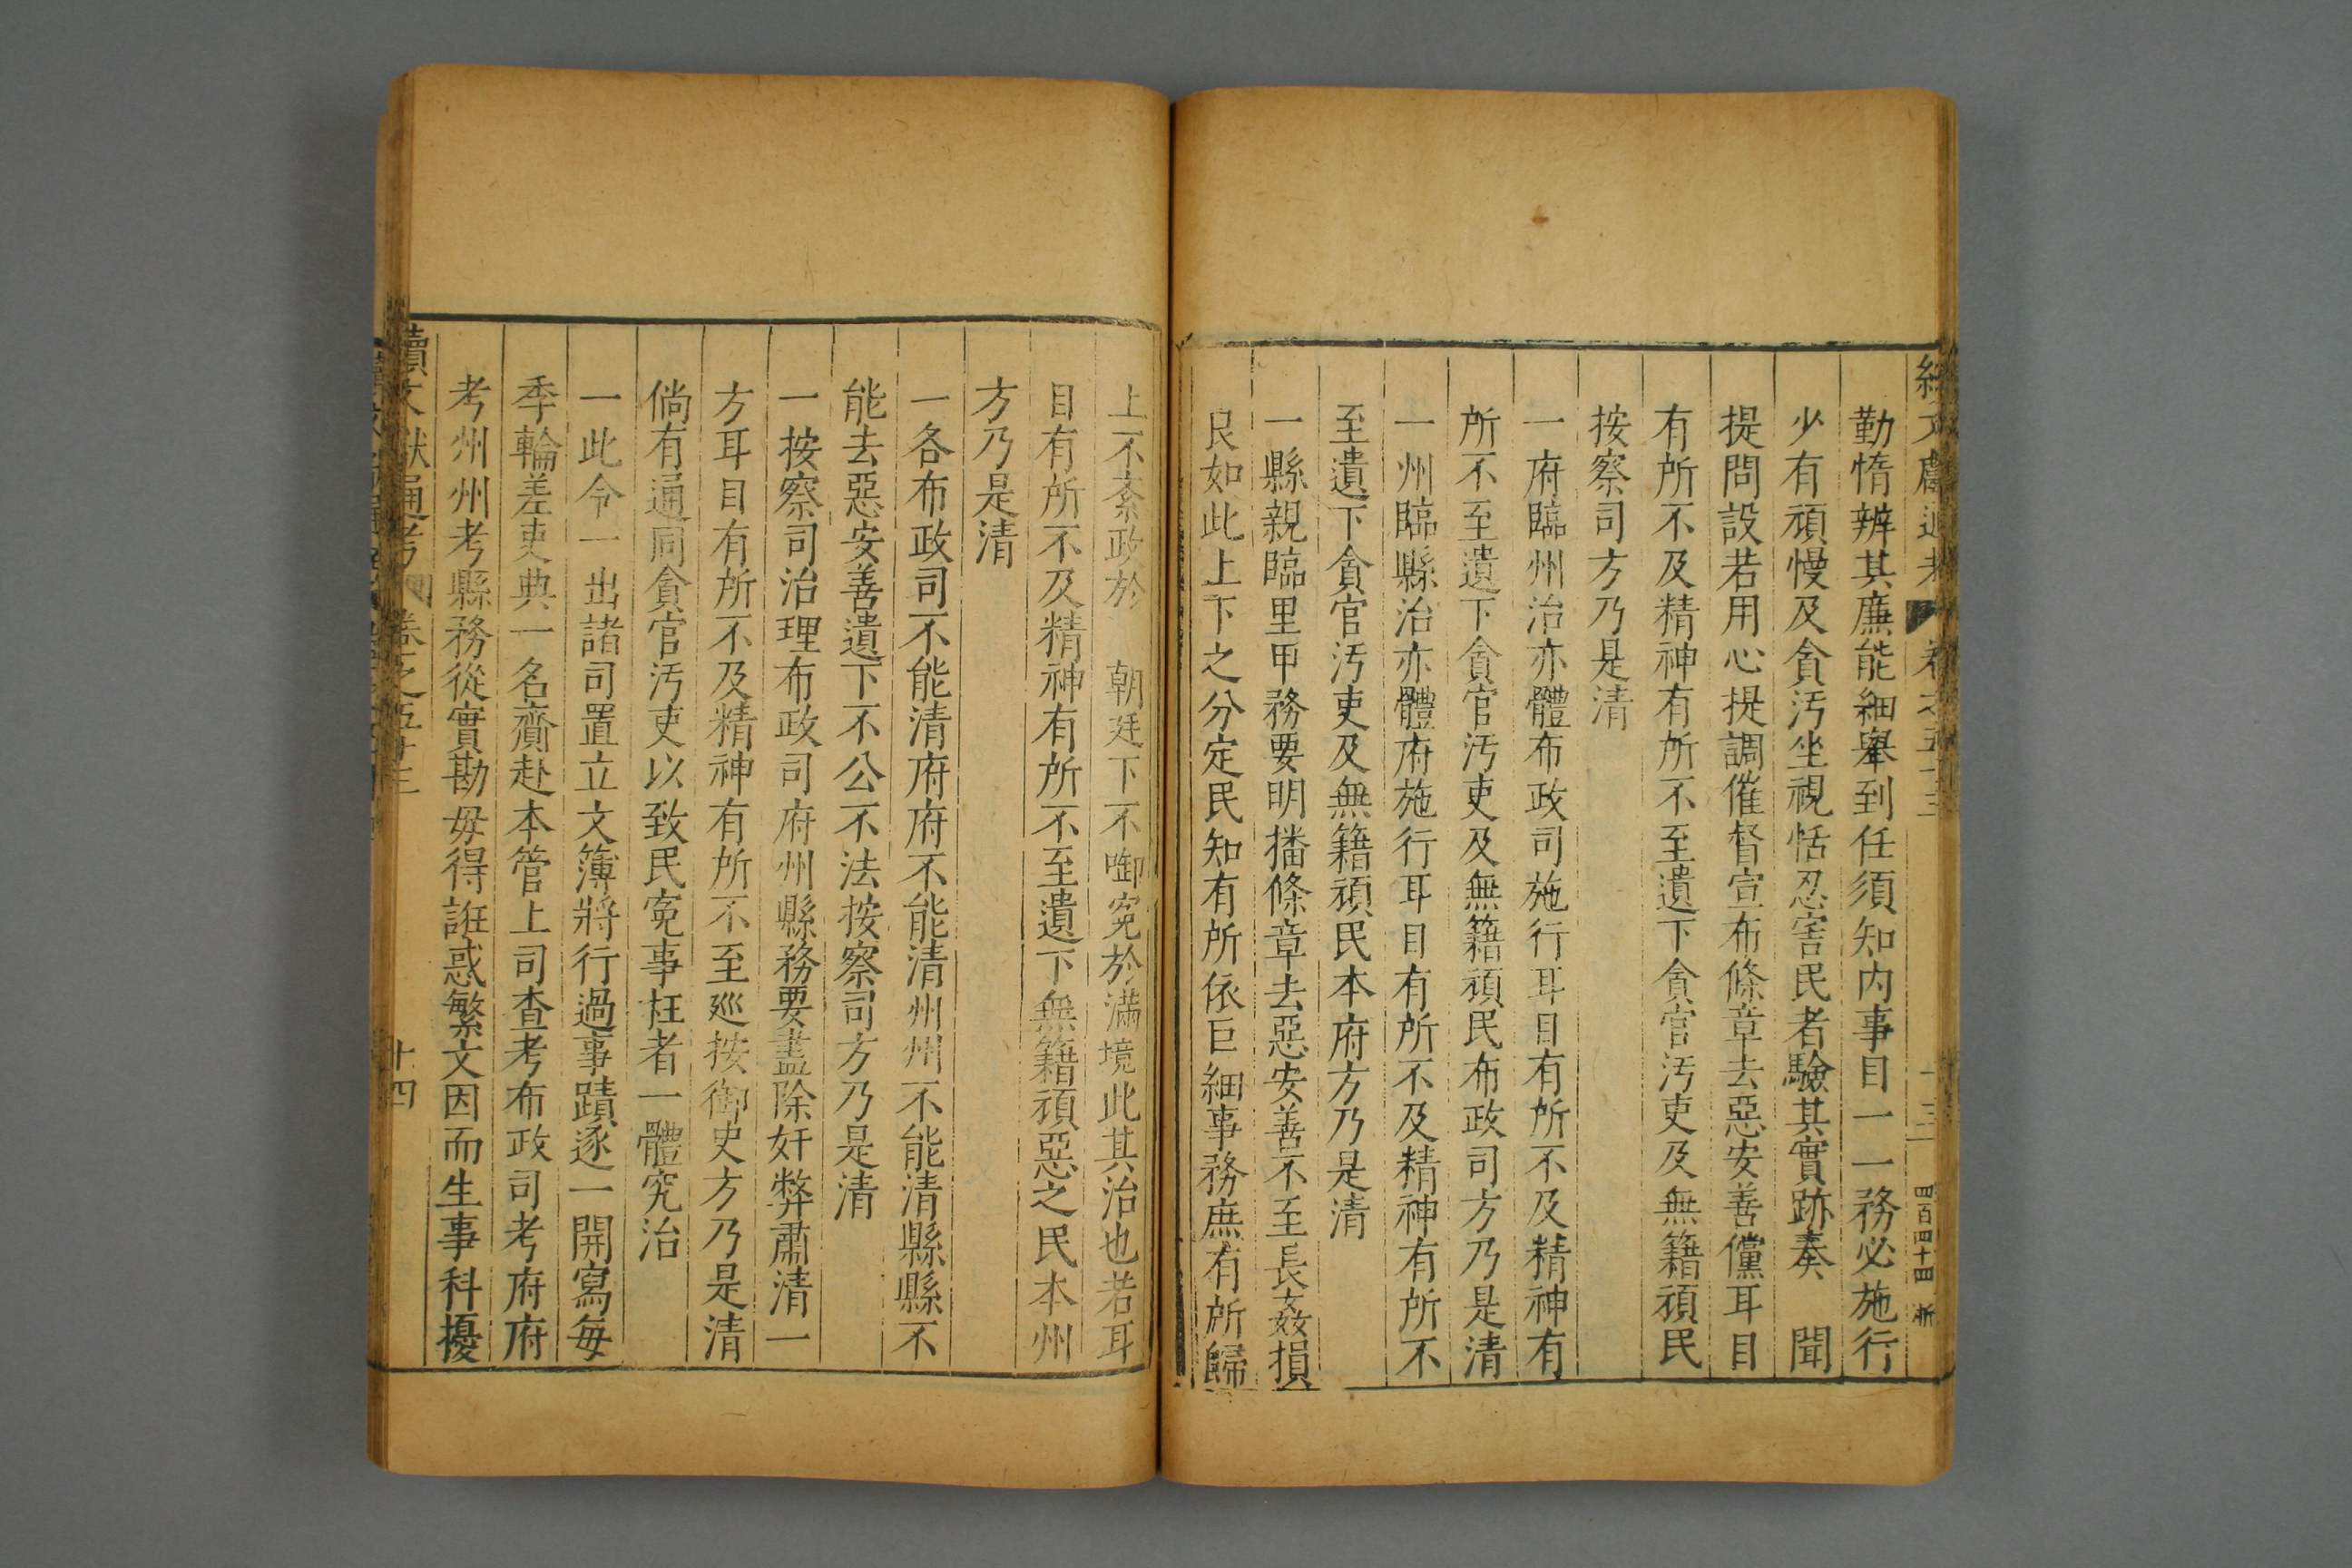 續文獻通考 卷之五十三 十三 四百四十四
勤惰辨其廉能細舉到任須知内事目一一務必施行
少有頑慢及貪汚坐視恬忍害民者驗其實跡奏 聞
提問設若用心提調催督宣布條章去惡安善儻耳目
有所不及精神有所不至遺下貪官汚吏及無籍頑民
按察司方乃是清
一府臨州治亦體布政司施行耳目有所不及精神有
所不至遺下貪官汚吏及無籍頑民布政司方乃是清
一州臨縣治亦體府施行耳目有所不及精神有所不
至遺下貪官汚吏及無籍頑民本府方乃是清
一縣親臨里甲務要明播條章去惡安善不至長姦損
良如此上下之分定民知有所依巨細事務庶有所歸
上不紊政於 朝廷下不啣寃於滿境此其治也若耳
目有所不及精神有所不至遺下無籍頑惡之民本州
方乃是清
一各布政司不能清府府不能清州州不能清縣縣不
能去惡安善遺下不公不法按察司方乃是清
一按察司治理布政司府州縣務要盡除奸弊肅清一
方耳目有所不及精神有所不至廵按御史方乃是清
倘有通同貪官汚吏以致民寃事枉者一體究治
一此令一出諸司置立文簿將行過事蹟逐一開寫每
季輪差吏典一名齎赴本管上司查考布政司考府府
考州州考縣務從實勘毋得誑惑繁文因而生事科擾
續文獻通考 卷之五十三 十四